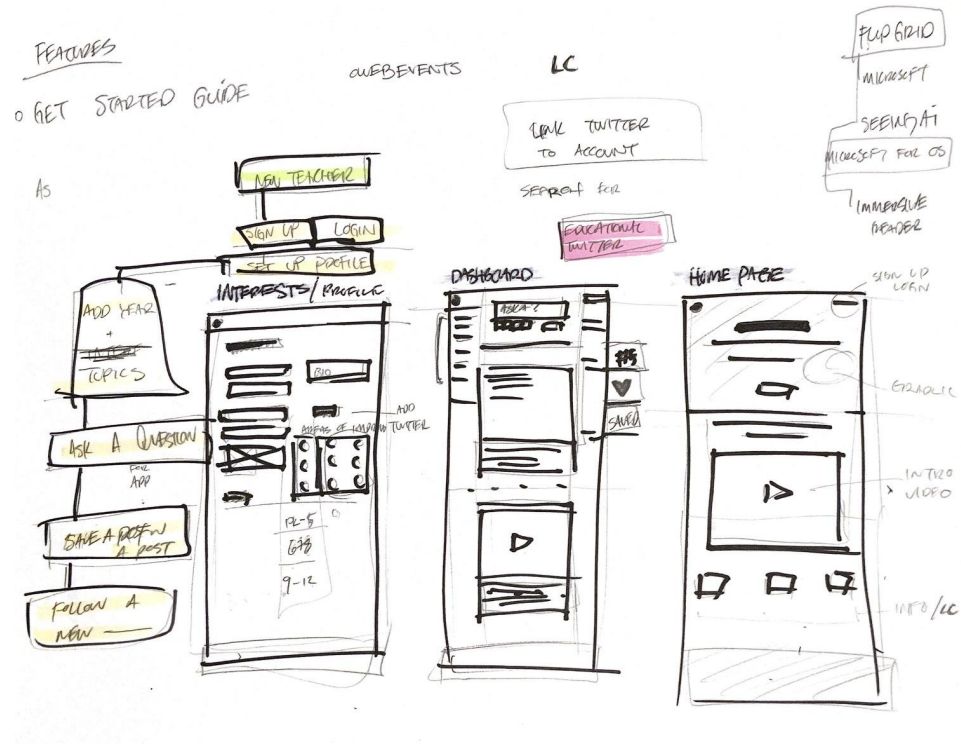 FEATURES
GET STARTED GUIDE
WEBEVENTS
LC
LINK TWITTER
TO ACCOUNT
SEARCH FOR
EDUCATIONAL
TWITTER
FLIPGRID
MICROSOFT
SEEING AI
MICROSOFT FOR OS
IMMERSIVE
READER
AS
NEW TEACHER
SIGN UP
LOGIN
SET UP PROFILE
ADD YEAR
+
TOPICS
ASK A QUESTION
FOR
APP
SAVE A POST
A POST
FOLLOW A
NEW
INTERESTS/PROFILE
BIO
ADD
TWITTER
AREAS OF
PK-5
6-8
9-12
DASHBOARD
ASK A?
SAVED
HOME PAGE
SIGN UP
LOGIN
GRAPHIC
INTRO
VIDEO
INFO/LC